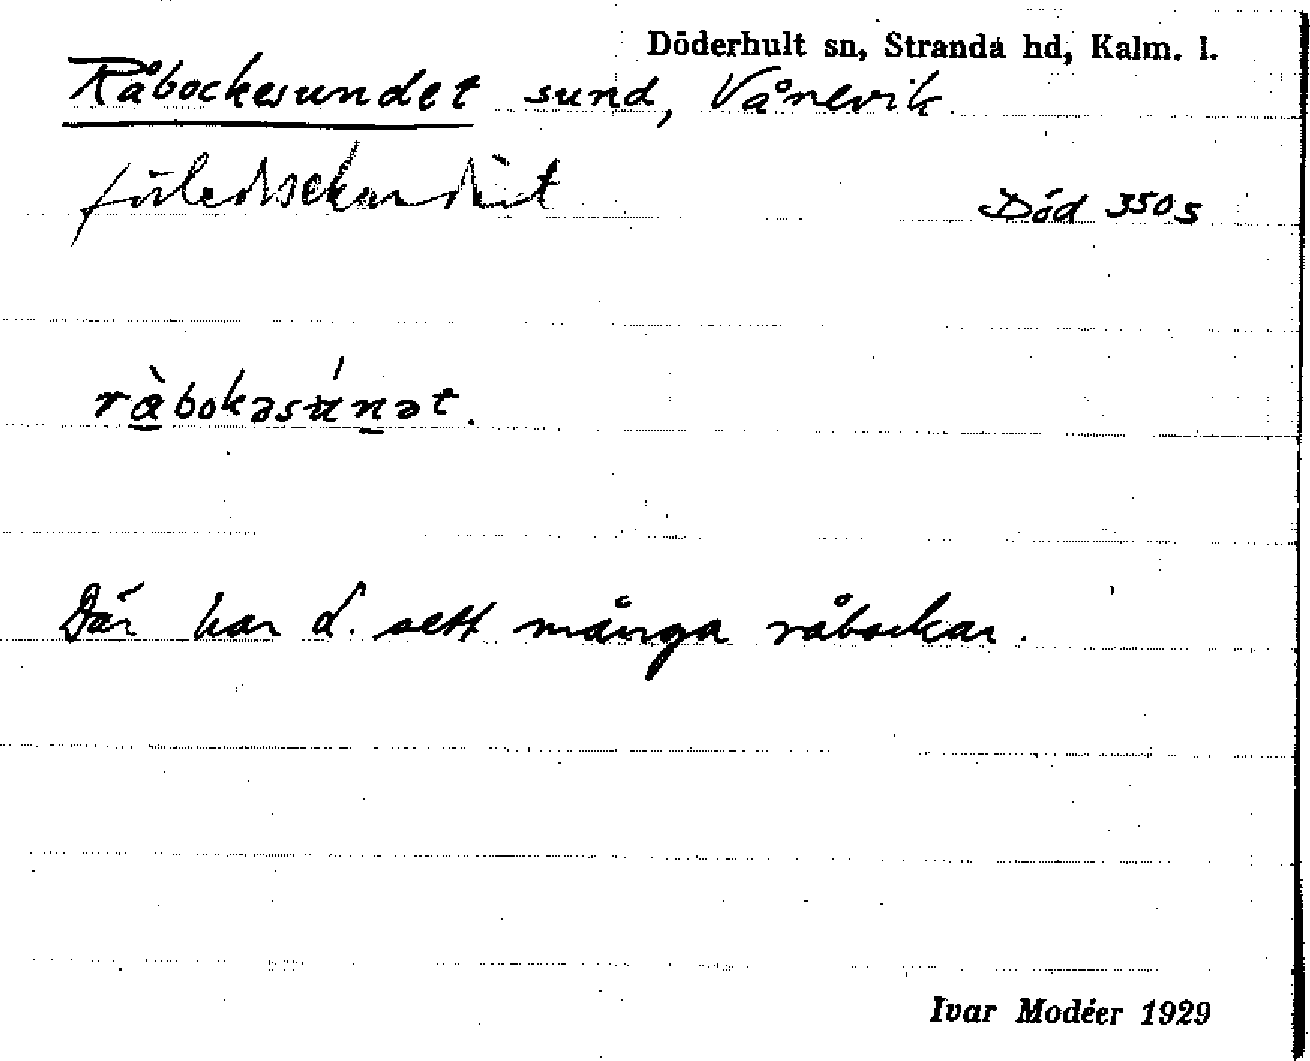 Döderhult sn, Stranda hd, Kalm. l.
Råbockesundet sund, Vånevik.
Död 3505
rὰbokəsúnət.
Där har d. sett många råbockar.
Ivar Modéer 1929